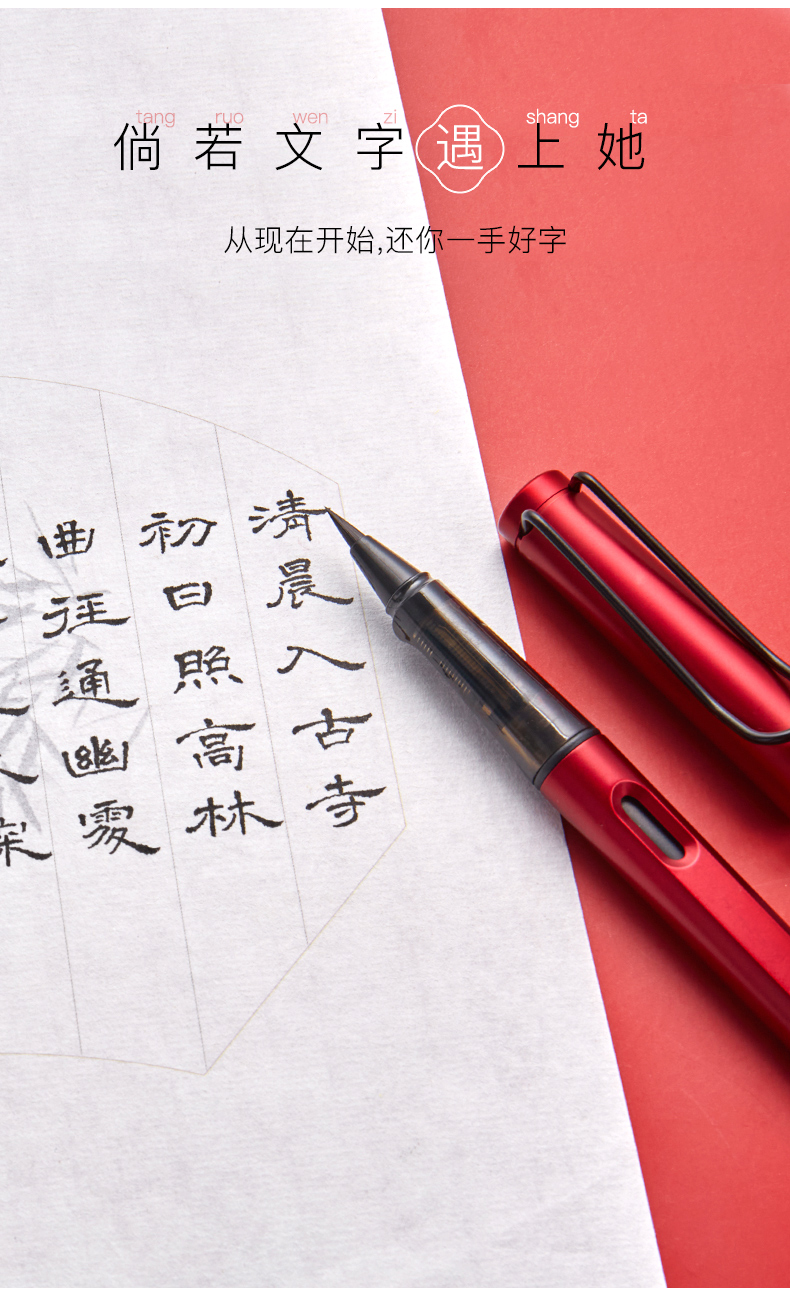 tang ruo wen zi shang ta
倘若文字遇上她
从现在开始,还你一手好字
清晨入古寺
初日照高林
曲徑通幽處